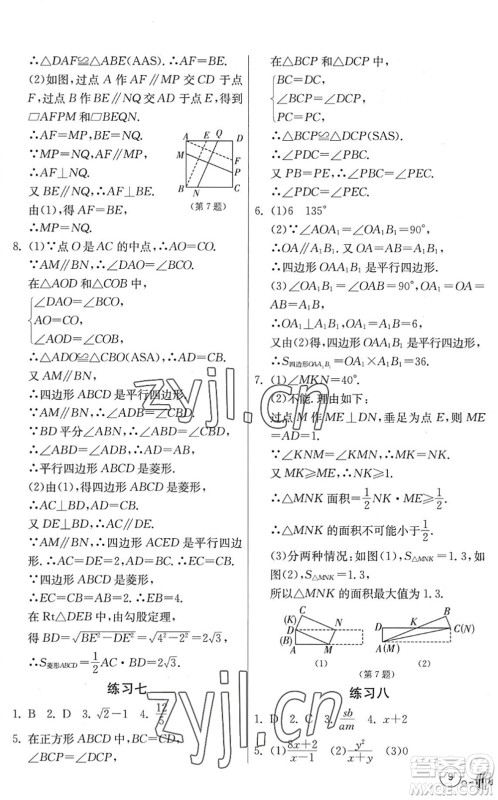 ∴△DAF≌△ABE(AAS). ∴AF=BE.
(2)如图,过点 A 作 AF∥MP 交 CD 于点
F,过点 B 作 BE∥NQ 交 AD 于点 E,得到
□AFPM 和□BEQN.
∴AF=MP,BE=NQ.
∵MP=NQ,∴AF=BE.
由(1),得 AF⊥BE.
∵MP⊥NQ,AF∥MP,
∴AF⊥NQ.
又 BE∥NQ,∴AF⊥BE.
由(1),得 AF=BE.
∴MP=NQ.
A E Q D
M F
P
B N C
(第 7 题)
8. (1)∵点 O 是 AC 的中点,∴AO=CO.
∵AM∥BN,∴∠DAC=∠ACB.
在△AOD 和△COB 中,
∠DAO=∠BCO,
AO=CO,
∠AOD=∠COB,
∴△ADO≌△CBO(ASA),∴AD=CB.
又 AM∥BN,
∴四边形 ABCD 是平行四边形.
∵AM∥BN,∴∠ADB=∠CBD.
∵BD 平分∠ABN,∴∠ABD=∠CBD.
∴∠ABD=∠ADB,∴AD=AB.
∴平行四边形 ABCD 是菱形.
(2)由(1),得四边形 ABCD 是菱形,
∴AC⊥BD,AD=CB.
又 DE⊥BD,∴AC∥DE.
∵AM∥BN,∴四边形 ACED 是平行四边
形,∴AC=DE=2,AD=EC.∴EC=CB.
∵四边形 ABCD 是菱形,
∴EC=CB=AB=2,∴EB=4.
在 Rt△DEB 中,由勾股定理,
得 BD=√(BE²-DE²)=√(4²-2²)=2√3,
∴S菱形ABCD=1/2 AC·BD=2√3.
练习七
1. B 2. D 3. √2-1 4. 12/5
5. 在正方形 ABCD 中,∵BC=CD,
在△BCP 和△DCP 中,
BC=DC,
∠PCB=∠PCD,
PC=PC,
∴△BCP≌△DCP(SAS).
∴∠PDC=∠PBC.
又 PB=PE,∴∠PBC=∠PEC.
∴∠PDC=∠PEC.
6. (1)6 135°
(2)∵∠AOA₁=∠OA₁B₁=90°,
∴OA∥A₁B₁. 又 OA=AB=A₁B₁,
∴四边形 OAA₁B₁ 是平行四边形.
(3)∵∠OA₁B₁=∠OAB=90°,
∴OA₁⊥A₁B₁,∴OA₁=A₁B₁=6,
又由(2),得四边形 OAA₁B₁ 是平行四边形,
∴S四边形OAA₁B₁=OA₁×A₁B₁=36.
7. (1)∠MKN=40°.
(2)不能. 理由如下:
过点 M 作 ME⊥DN,垂足为点 E,则 ME
=AD=1.
∵∠KNM=∠KMN,∴MK=NK.
又 MK≥ME,∴NK≥1.
∴△MNK 面积=1/2 NK·ME≥1/2.
∴△MNK 的面积不可能小于1/2.
(3)分两种情况:如图(1),S△MNK=1.3,如
图(2),S△MNK=1.3,
所以△MNK 的面积最大值为 1.3.
(1)
(2)
(第 7 题)
练习八
1. D 2. C 3. sb/am 4. x+2
5. (1) (8x+2)/(x-1) (2) y²/(x+y) (3)0
9
zyjl.cn
zyjl.cn